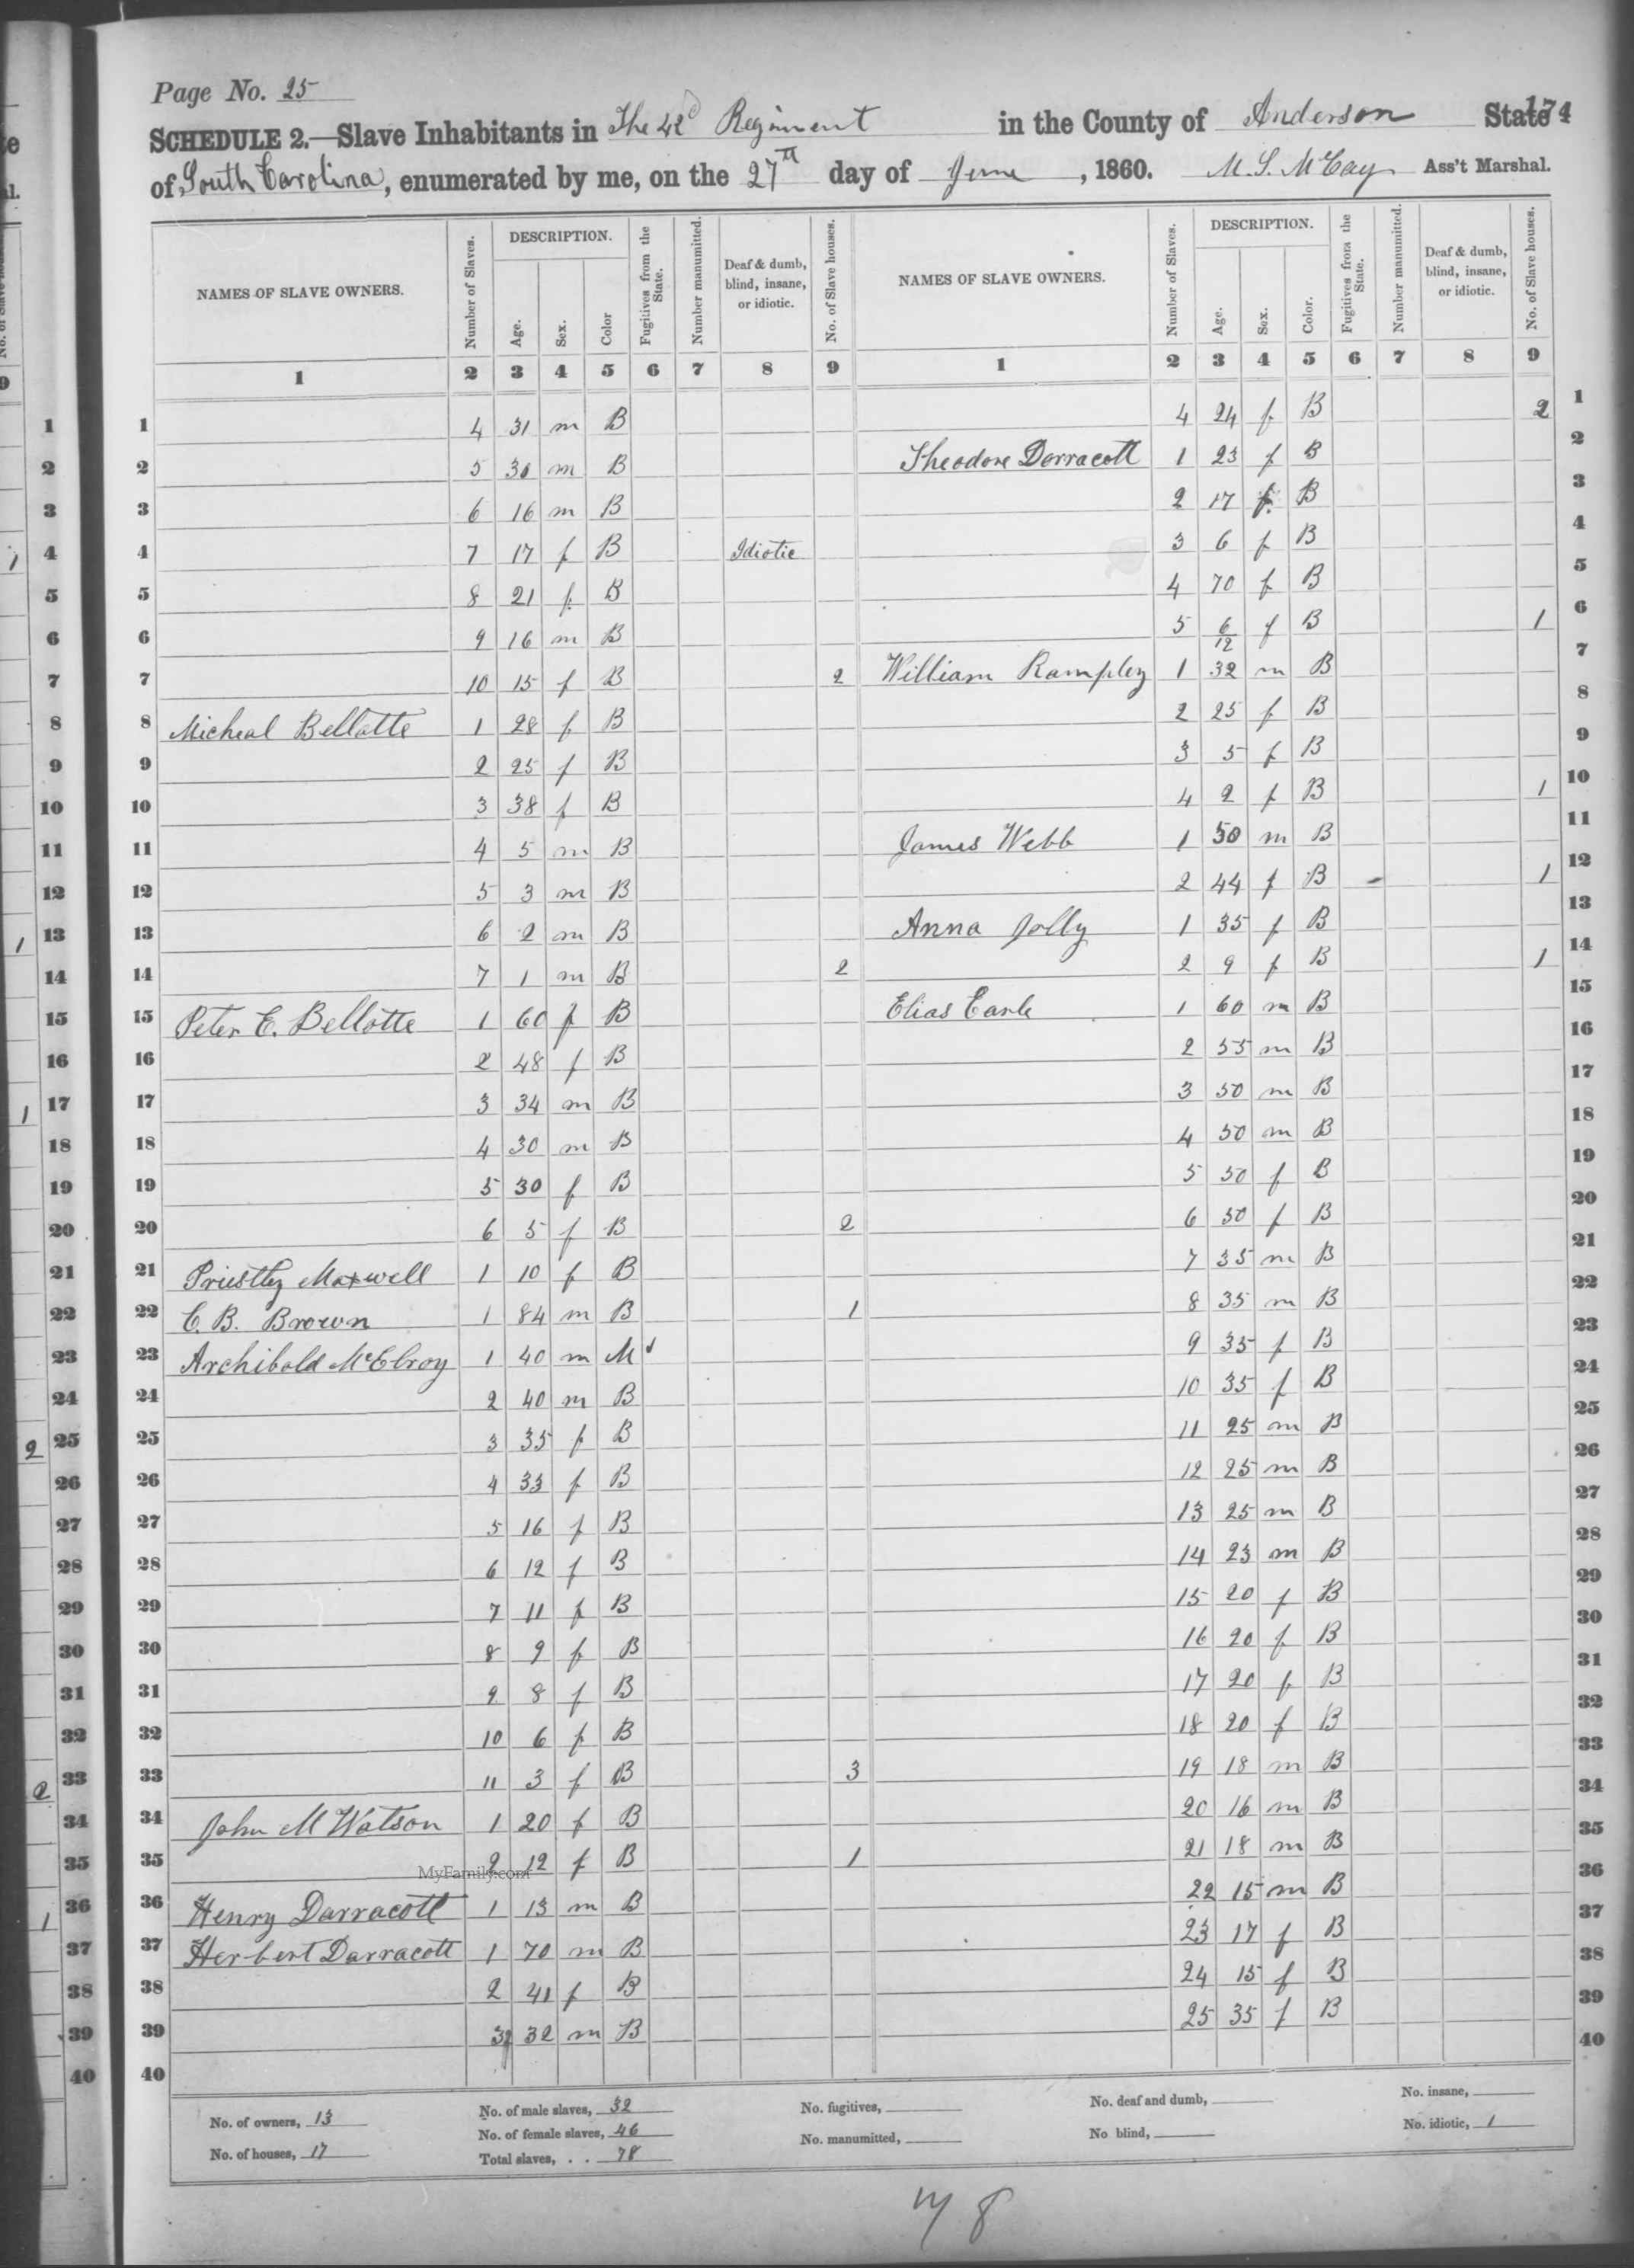 Page No. 25
SCHEDULE 2.—Slave Inhabitants in The 42d Regiment in the County of Anderson State 174
of South Carolina, enumerated by me, on the 27th day of June, 1860. M. S. McCay Ass't Marshal.
NAMES OF SLAVE OWNERS. Number of Slaves. DESCRIPTION. Age. Sex. Color Fugitives from the State. Number manumitted. Deaf & dumb, blind, insane, or idiotic. No. of Slave houses.
1 2 3 4 5 6 7 8 9
1 4 31 m B
2 5 30 m B
3 6 16 m B
4 7 17 f B Idiotic
5 8 21 f B
6 9 16 m B
7 10 15 f B 2
8 Micheal Bellotte 1 28 f B
9 2 25 f B
10 3 38 f B
11 4 5 m B
12 5 3 m B
13 6 2 m B
14 7 1 m B 2
15 Peter E. Bellotte 1 60 f B
16 2 48 f B
17 3 34 m B
18 4 30 m B
19 5 30 f B
20 6 5 f B 2
21 Priestly Maxwell 1 10 f B
22 C. B. Brown 1 84 m B 1
23 Archibold McElroy 1 40 m M
24 2 40 m B
25 3 35 f B
26 4 33 f B
27 5 16 f B
28 6 12 f B
29 7 11 f B
30 8 9 f B
31 9 8 f B
32 10 6 f B
33 11 3 f B 3
34 John M Watson 1 20 f B
35 2 12 f B 1
36 Henry Darracott 1 13 m B
37 Herbert Darracott 1 70 m B
38 2 41 f B
39 3 32 m B
40
NAMES OF SLAVE OWNERS. Number of Slaves. DESCRIPTION. Age. Sex. Color. Fugitives from the State. Number manumitted. Deaf & dumb, blind, insane, or idiotic. No. of Slave houses.
1 2 3 4 5 6 7 8 9
4 24 f B 2 1
Theodore Dorracott 1 23 f B 2
2 17 f B 3
3 6 f B 4
4 70 f B 5
5 6/12 f B 1 6
William Rampley 1 32 m B 7
2 25 f B 8
3 5 f B 9
4 2 f B 1 10
James Webb 1 50 m B 11
2 44 f B 1 12
Anna Jolly 1 35 f B 13
2 9 f B 1 14
Elias Earle 1 60 m B 15
2 55 m B 16
3 50 m B 17
4 50 m B 18
5 50 f B 19
6 50 f B 20
7 35 m B 21
8 35 m B 22
9 35 f B 23
10 35 f B 24
11 25 m B 25
12 25 m B 26
13 25 m B 27
14 23 m B 28
15 20 f B 29
16 20 f B 30
17 20 f B 31
18 20 f B 32
19 18 m B 33
20 16 m B 34
21 18 m B 35
22 15 m B 36
23 17 f B 37
24 15 f B 38
25 35 f B 39
40
MyFamily.com
No. of owners, 13 No. of male slaves, 32 No. fugitives, No. deaf and dumb, No. insane,
No. of houses, 17 No. of female slaves, 46 No. manumitted, No blind, No. idiotic, 1
Total slaves, . . 78